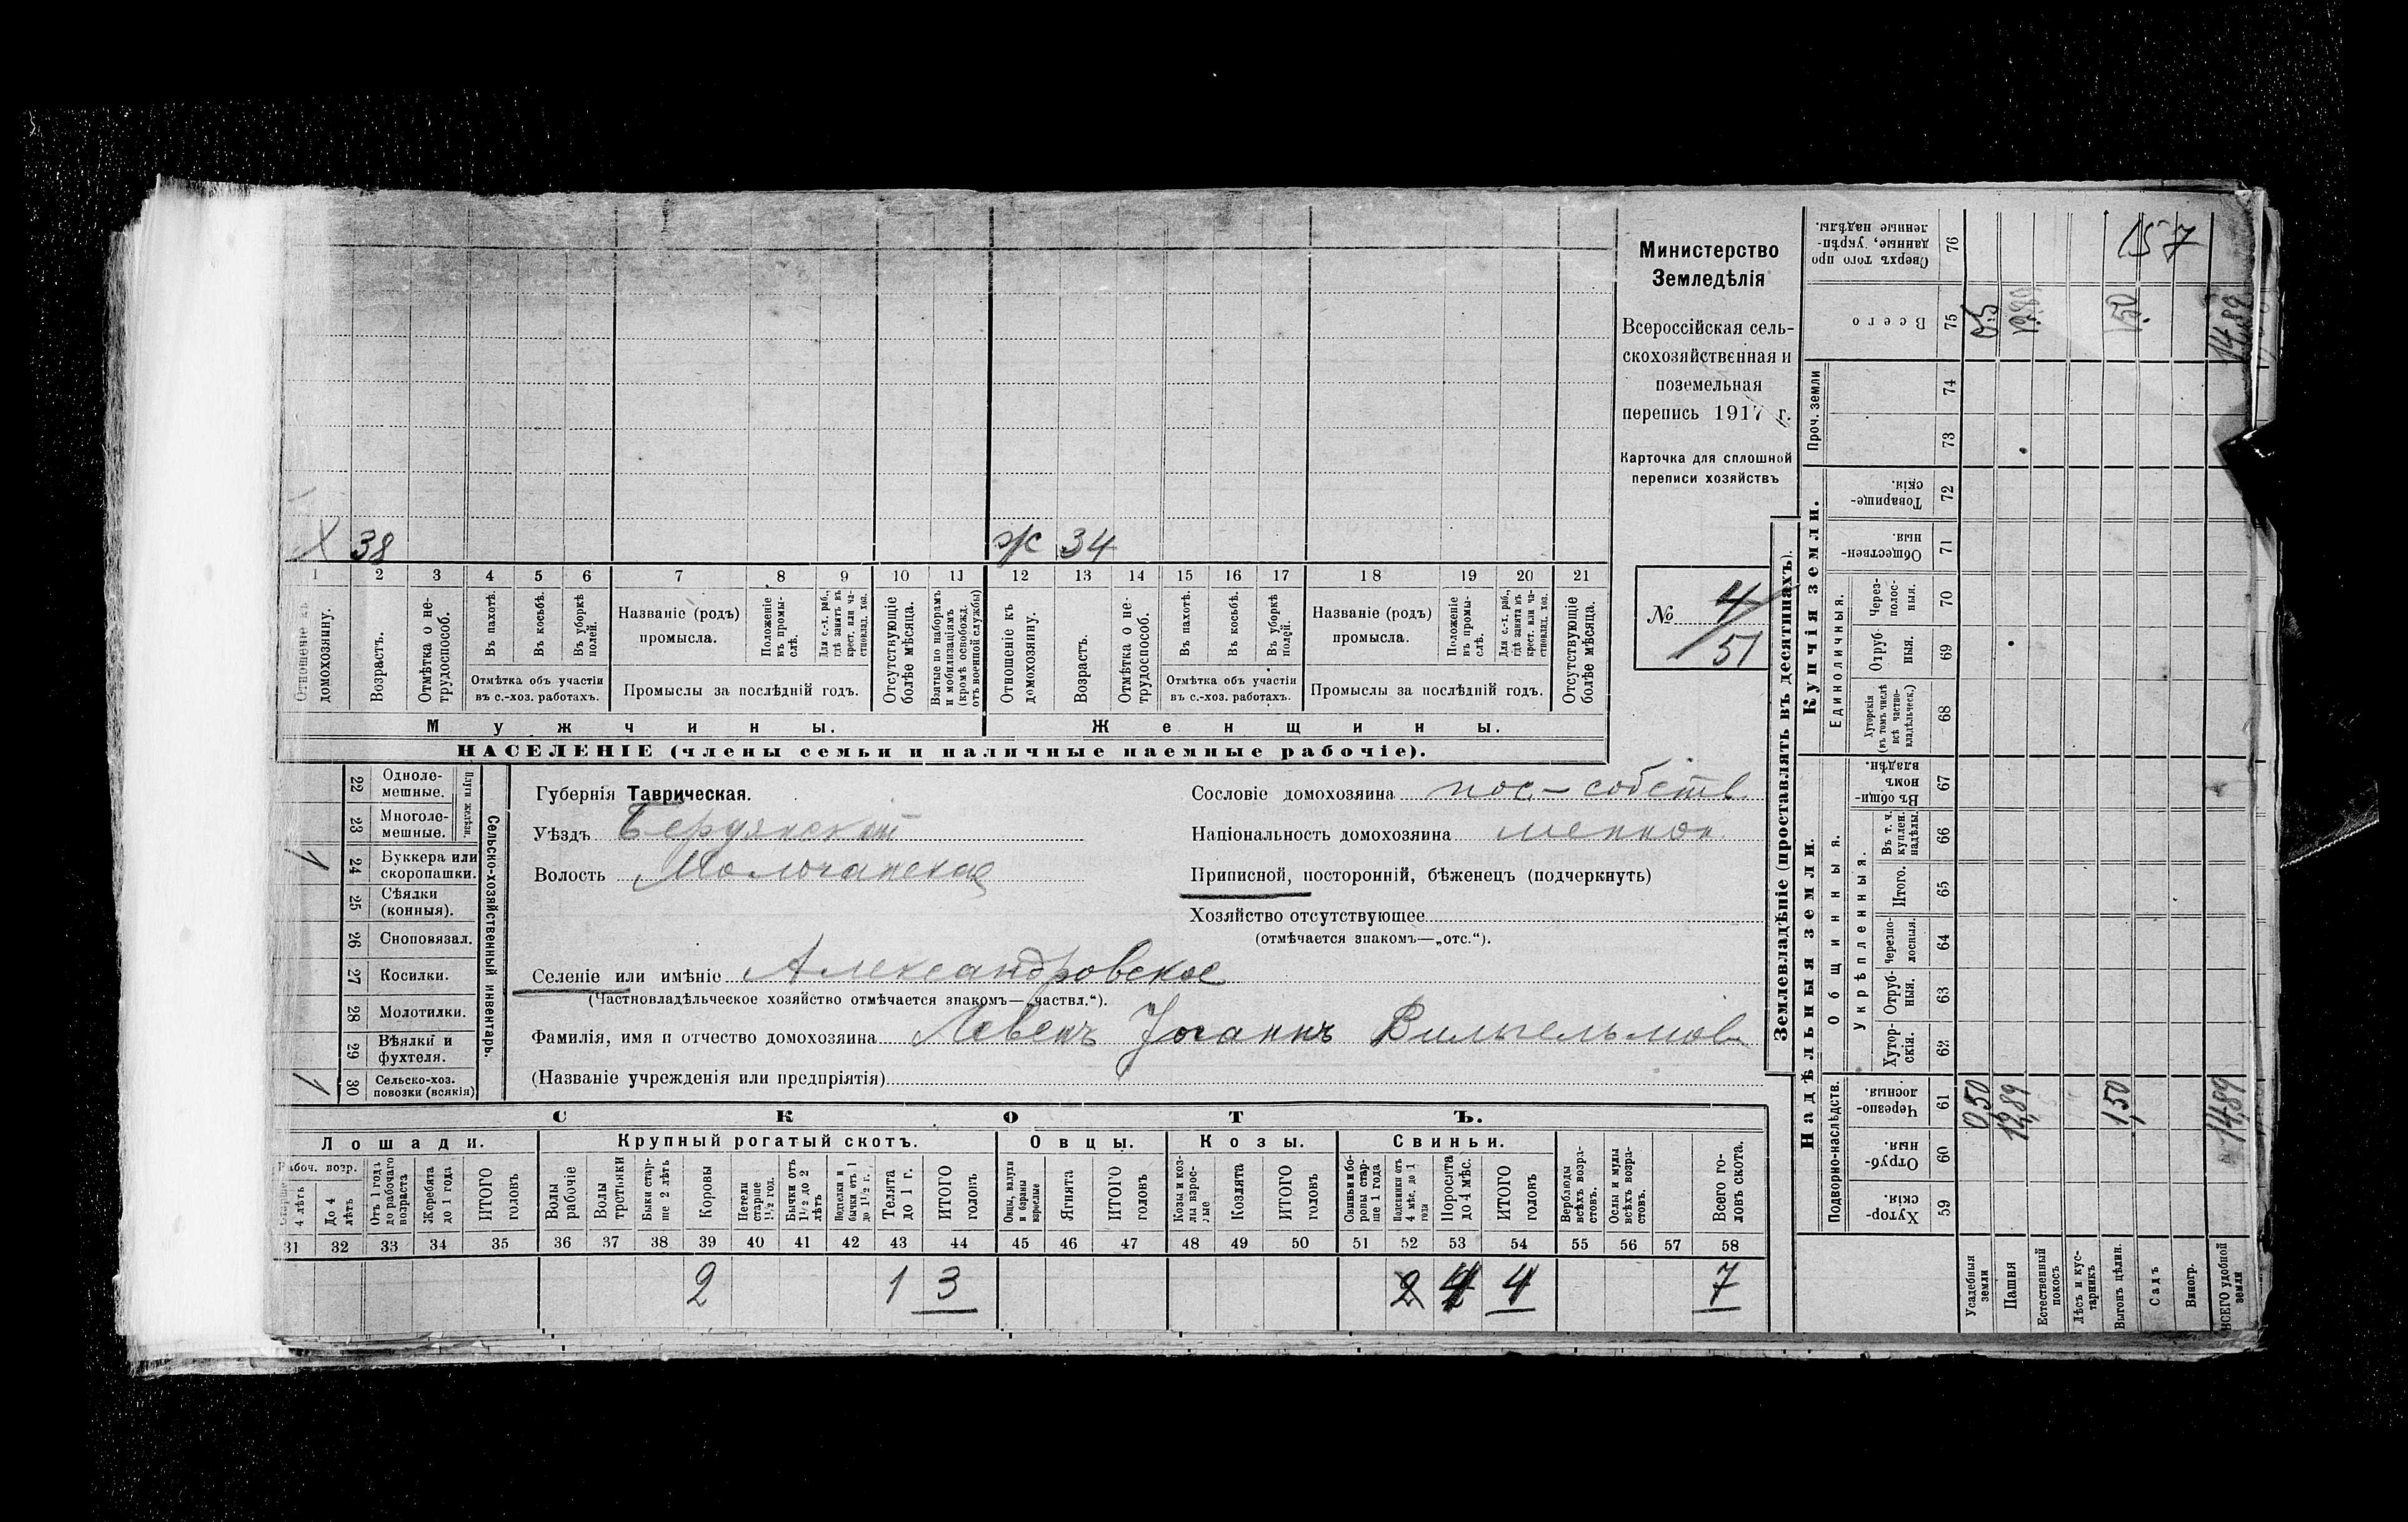 Х 38 ж 34
1 2 3 4 5 6 7 8 9 10 11 12 13 14 15 16 17 18 19 20 21
Отношеніе къ домохозяину.
Возрастъ.
Отмѣтка о не-трудоспособ.
Въ пахотѣ.
Въ косьбѣ.
Въ уборкѣ полей.
Отмѣтка объ участіи
въ с.-хоз. работахъ.
Названіе (родъ)
промысла.
Положеніе въ промы-слѣ.
Для с.-х. раб., гдѣ занятъ въ крест. или ча-стновлад. хоз.
Промыслы за послѣдній годъ.
Отсутствующіе болѣе мѣсяца.
Взятые по наборамъ и мобилизаціямъ (кромѣ освобожд. отъ военной службы)
Отношеніе къ домохозяину.
Возрастъ.
Отмѣтка о не-трудоспособ.
Въ пахотѣ.
Въ косьбѣ.
Въ уборкѣ полей.
Отмѣтка объ участіи
въ с.-хоз. работахъ.
Названіе (родъ)
промысла.
Положеніе въ промы-слѣ.
Для с.-х. раб., гдѣ занята въ крест. или ча-стновлад. хоз.
Промыслы за послѣдній годъ.
Отсутствующіе болѣе мѣсяца.
Мужчины.
Женщины.
НАСЕЛЕНІЕ (члены семьи и наличные наемные рабочіе).
Министерство
Земледѣлія
Всероссійская сель-
скохозяйственная и
поземельная
перепись 1917 г.
Карточка для сплошной
переписи хозяйствъ
№ 4/51
22 Одноле-мешные.
23 Многоле-мешные.
Плуги желѣзн.
24 Буккера или скоропашки.
25 Сѣялки (конныя).
26 Сноповязал.
27 Косилки.
28 Молотилки.
29 Вѣялки и фухтеля.
30 Сельско-хоз. повозки (всякія)
Сельско-хозяйственный инвентарь.
1
1
Губернія Таврическая.
Уѣздъ Бердянскій
Волость Молочанская
Сословіе домохозяина пос-собств
Національность домохозяина меннон.
Приписной, посторонній, бѣженецъ (подчеркнуть)
Хозяйство отсутствующее
(отмѣчается знакомъ—„отс.“).
Селеніе или имѣніе Александровское
(Частновладѣльческое хозяйство отмѣчается знакомъ—„частвл.“).
Фамилія, имя и отчество домохозяина Левенъ Іоганнъ Вильгельмов
(Названіе учрежденія или предпріятія)
СКОТЪ.
Лошади. Крупный рогатый скотъ. Овцы. Козы. Свиньи.
Рабоч. возр.
Старше 4 лѣтъ
До 4 лѣтъ
Отъ 1 года до рабочаго возраста
Жеребята до 1 года
ИТОГО головъ
Волы рабочіе
Волы третьяки
Быки стар-ше 2 лѣтъ
Коровы
Нетели старше 1½ год.
Бычки отъ 1½ до 2 лѣтъ
Подтелки и бычки отъ 1 до 1½ г.
Телята до 1 г.
ИТОГО головъ
Овцы, валухи и бараны взрослые
Ягнята
ИТОГО головъ
Козы и коз-лы взрос-лые
Козлята
ИТОГО головъ
Свиньи и бо-ровы стар-ше 1 года
Подсвинки отъ 4 мѣс. до 1 года
Поросята до 4 мѣс.
ИТОГО головъ
Верблюды всѣхъ возра-стовъ.
Ослы и мулы всѣхъ возра-стовъ.
Всего го-ловъ скота.
31 32 33 34 35 36 37 38 39 40 41 42 43 44 45 46 47 48 49 50 51 52 53 54 55 56 57 58
2 1 3 2 4 4 7
Землевладѣніе (проставлять въ десятинахъ).
Надѣльныя земли.
Купчія земли.
Проч. земли
Подворно-наслѣдств.
Общинныя.
Укрѣпленныя.
Единоличныя.
Хутор-скія. 59
Отруб-ныя 60
Черезпо-лосныя. 61
Хутор-скія. 62
Отруб-ныя. 63
Черезпо-лосныя. 64
Итого. 65
Въ т. ч. куплен. надѣлы. 66
Въ общи-номъ владѣн. 67
Хуторскія (въ томъ числѣ всѣ частно-владѣльческ.) 68
Отруб-ныя. 69
Через-полос-ныя. 70
Обществен-ныя. 71
Товарище-скія. 72
73
74
Всего 75
Сверхъ того про-данные, укрѣп-ленные надѣлы. 76
157
Усадебныя земли 0,50 0,5
Пашня 12,89 12,89
Естественный покосъ
Лѣсъ и кус-тарникъ
Выгонъ цѣлин. 1,50 1,50
Садъ
Виногр.
ВСЕГО удобной земли 14,89 14,89